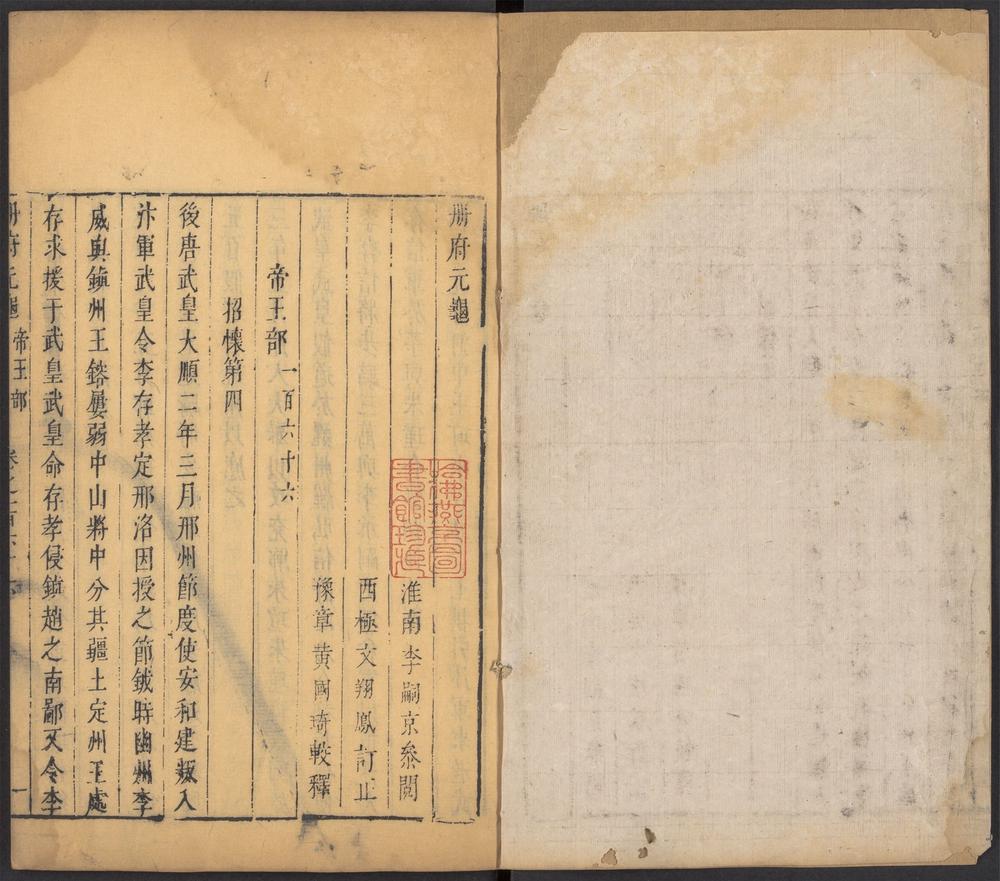 册府元龜
淮南李嗣京叅閱
西極文翔鳳訂正
豫章黃國琦較釋
帝王部一百六十六
招懷第四
後唐武皇大順二年三月邢州節度使安和建叛入
汴軍武皇令李存孝定邢洺因授之節鉞時幽州李
威與鎮州王鎔屢弱中山將中分其疆土定州王處
存求援于武皇武皇命存孝侵鎮趙之南鄙又令李
册府元龜 帝王部 卷之一百六十六 一
哈佛燕京圖書館珍藏